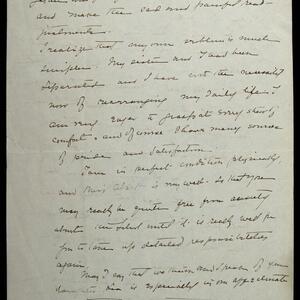 and make the sad and painful read-
justments.
I realize that my own problem is much
simpler. My sister and I had been
separated and I have not the necessity
now of rearranging my daily life. I
am very eager to grasp at every shred of
comfort - and of course I have many sources
of pride and satisfaction.
I am in perfect condition physically
and is very well. So that you
may really be quite free from anxiety
about until it is really well for
him to take up detailed responsibilities
again.
May I say that we think and speak of you
is especially in our affectionate